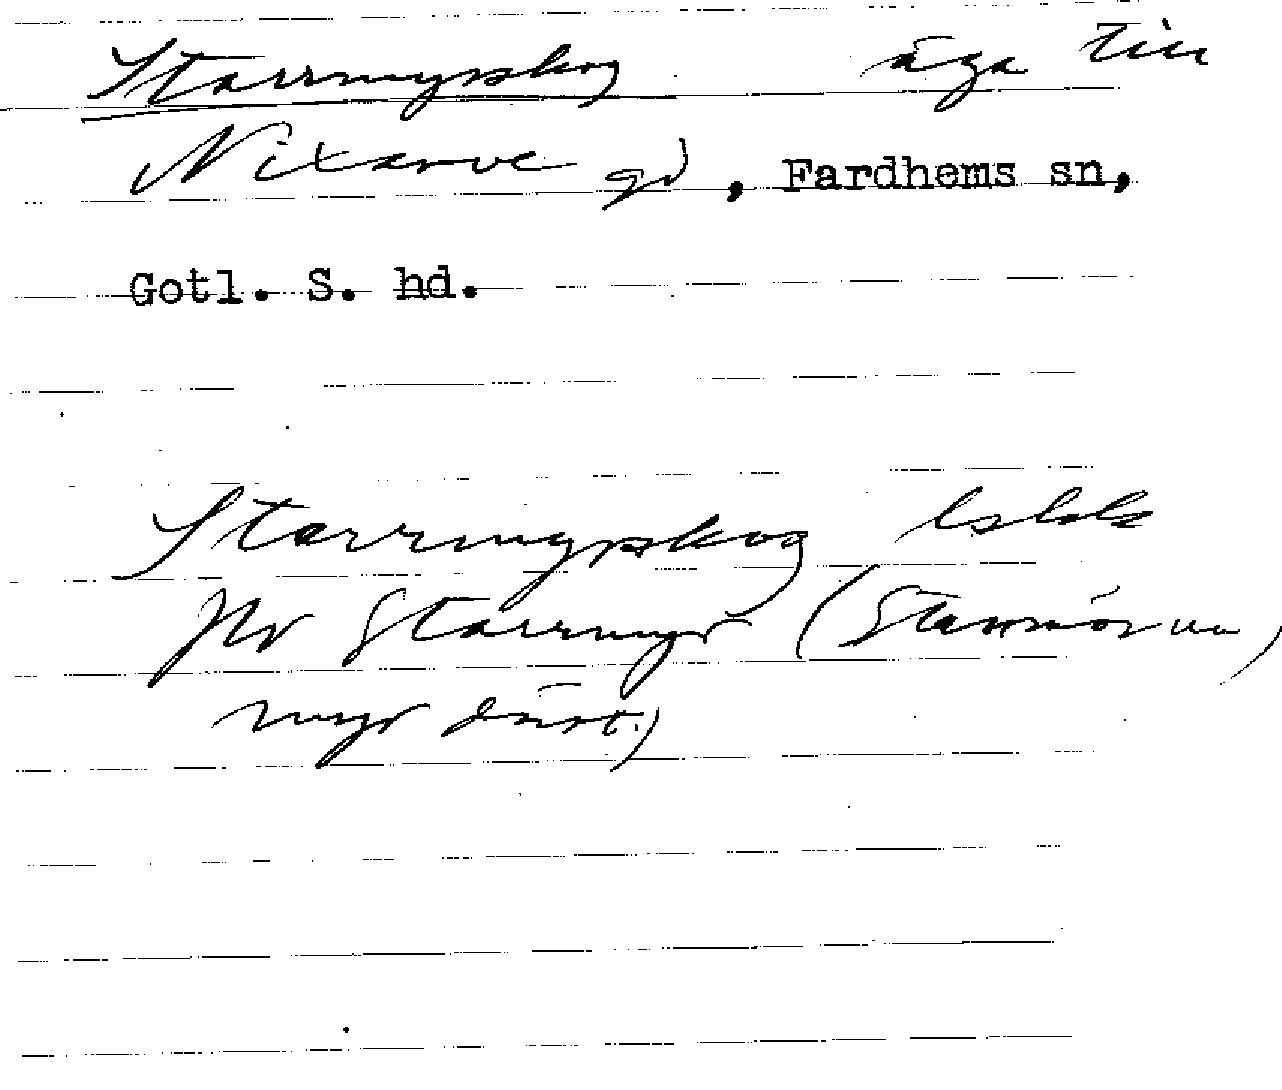 Starrmyrskog äga till
Nixarve gd, Fardhems sn,
Gotl. S. hd.
Starrmyrskog
Hr Starrmyr (Starrmörun,
myr därst.)